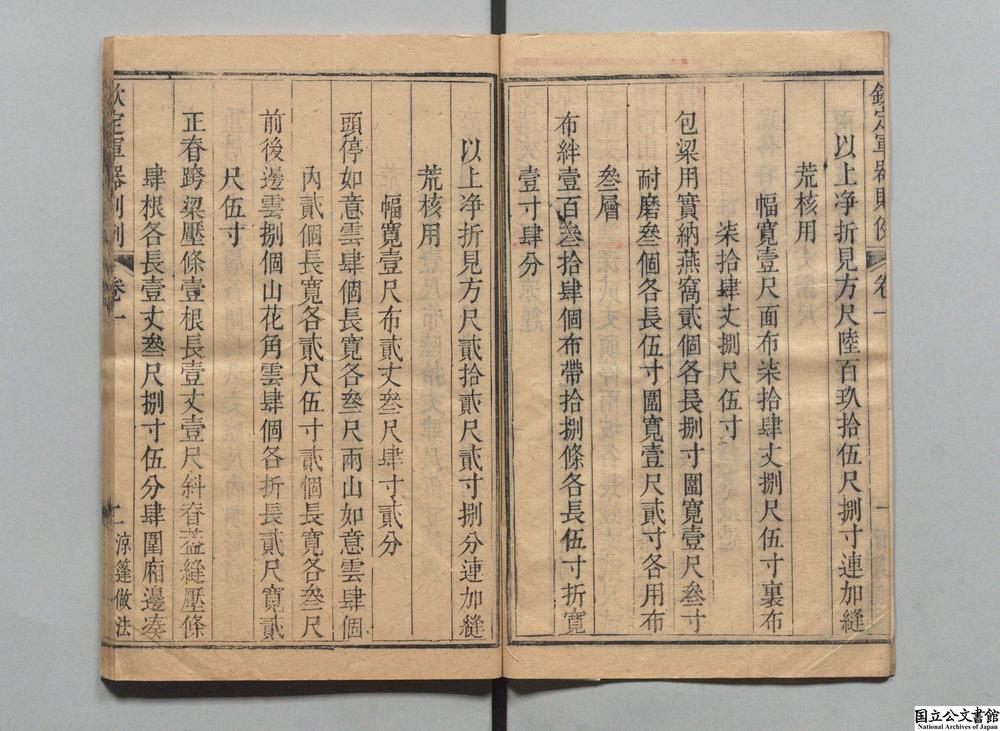 欽定軍器則例
卷一
一
以上净折見方尺陸百玖拾伍尺捌寸連加縫
荒核用
幅寬壹尺面布柒拾肆丈捌尺伍寸裏布
柒拾肆丈捌尺伍寸
包梁用實納燕窩貳個各長捌寸圍寬壹尺叄寸
耐磨叄個各長伍寸圍寬壹尺貳寸各用布
叄層
布絆壹百叄拾肆個布帶拾捌條各長伍寸折寬
壹寸肆分
以上净折見方尺貳拾貳尺貳寸捌分連加縫
荒核用
幅寬壹尺布貳丈叄尺肆寸貳分
頭停如意雲肆個長寬各叄尺兩山如意雲肆個
內貳個長寬各貳尺伍寸貳個長寬各叄尺
前後邊雲捌個山花角雲肆個各折長貳尺寬貳
尺伍寸
正脊跨梁壓條壹根長壹丈壹尺斜脊葢縫壓條
肆根各長壹丈叄尺捌寸伍分肆圍廂邊凑
欽定軍器則例
卷一
二
涼篷做法
国立公文書館
National Archives of Japan